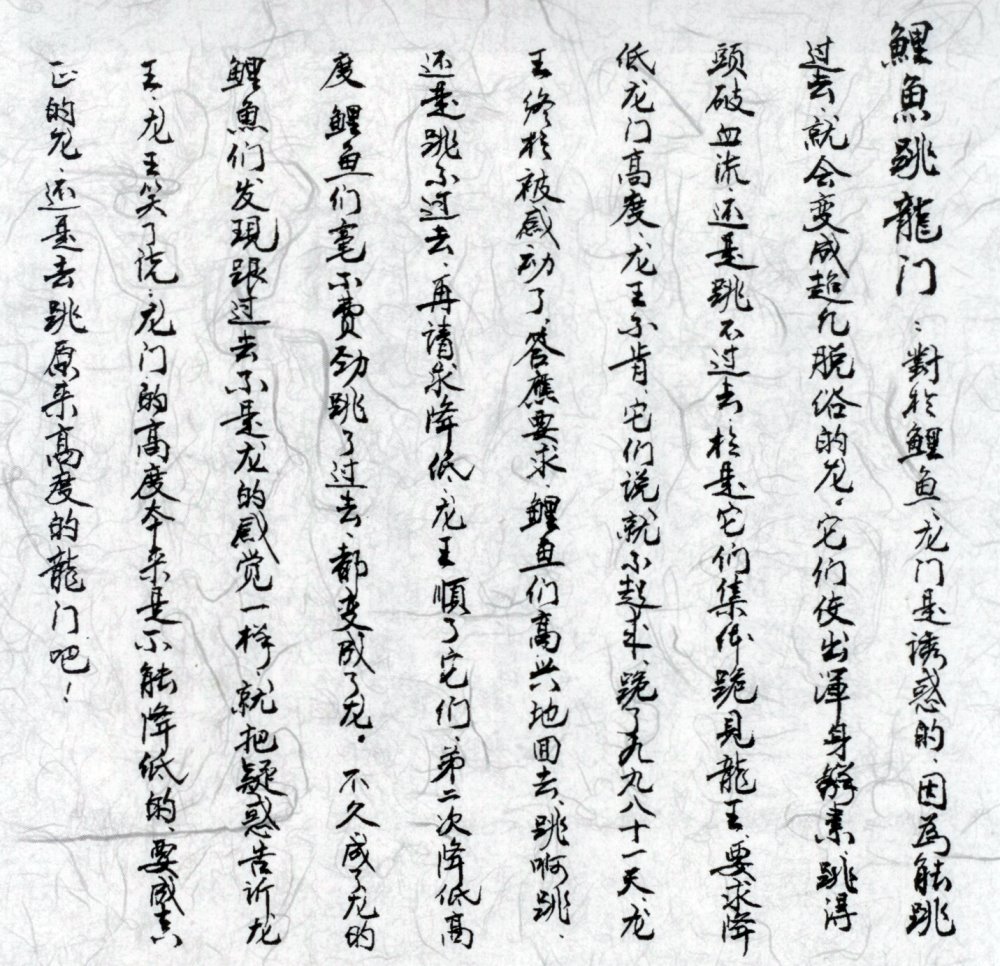 鯉魚跳龍门：對於鲤鱼、龙门是诱惑的，因為能跳
过去、就会变成超凡脱俗的龙。它们使出渾身解素、跳得
頭破血流、还是跳不过去、於是它们集体跪見龍王、要求降
低龙门高度、龙王不肯、它们说、就不起来、跪了九九八十一天、龙
王终於被感动了、答應要求、鲤鱼们高兴地回去、跳啊跳、
还是跳不过去、再請求降低、龙王順了它们、第二次降低高
度、鲤鱼们毫不费劲跳了过去、都变成了龙。不久成了龙的
鲤魚们发現跟过去不是龙的感觉一样、就把疑惑告訴龙
王、龙王笑了说：龙门的高度本来是不能降低的、要成真
正的龙、还是去跳原来高度的龍门吧！